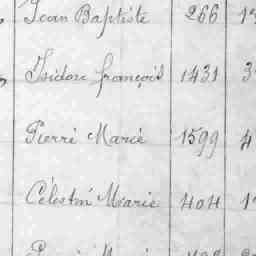 Jean Baptiste 266
Isidore françois 1431
Pierre Marie 1599
Célestin Marie 404